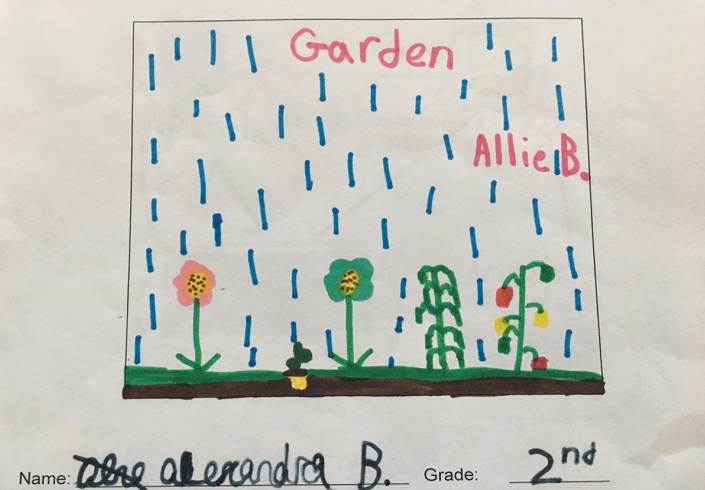 Garden
Allie B.
Name: alexandra B. Grade: 2nd